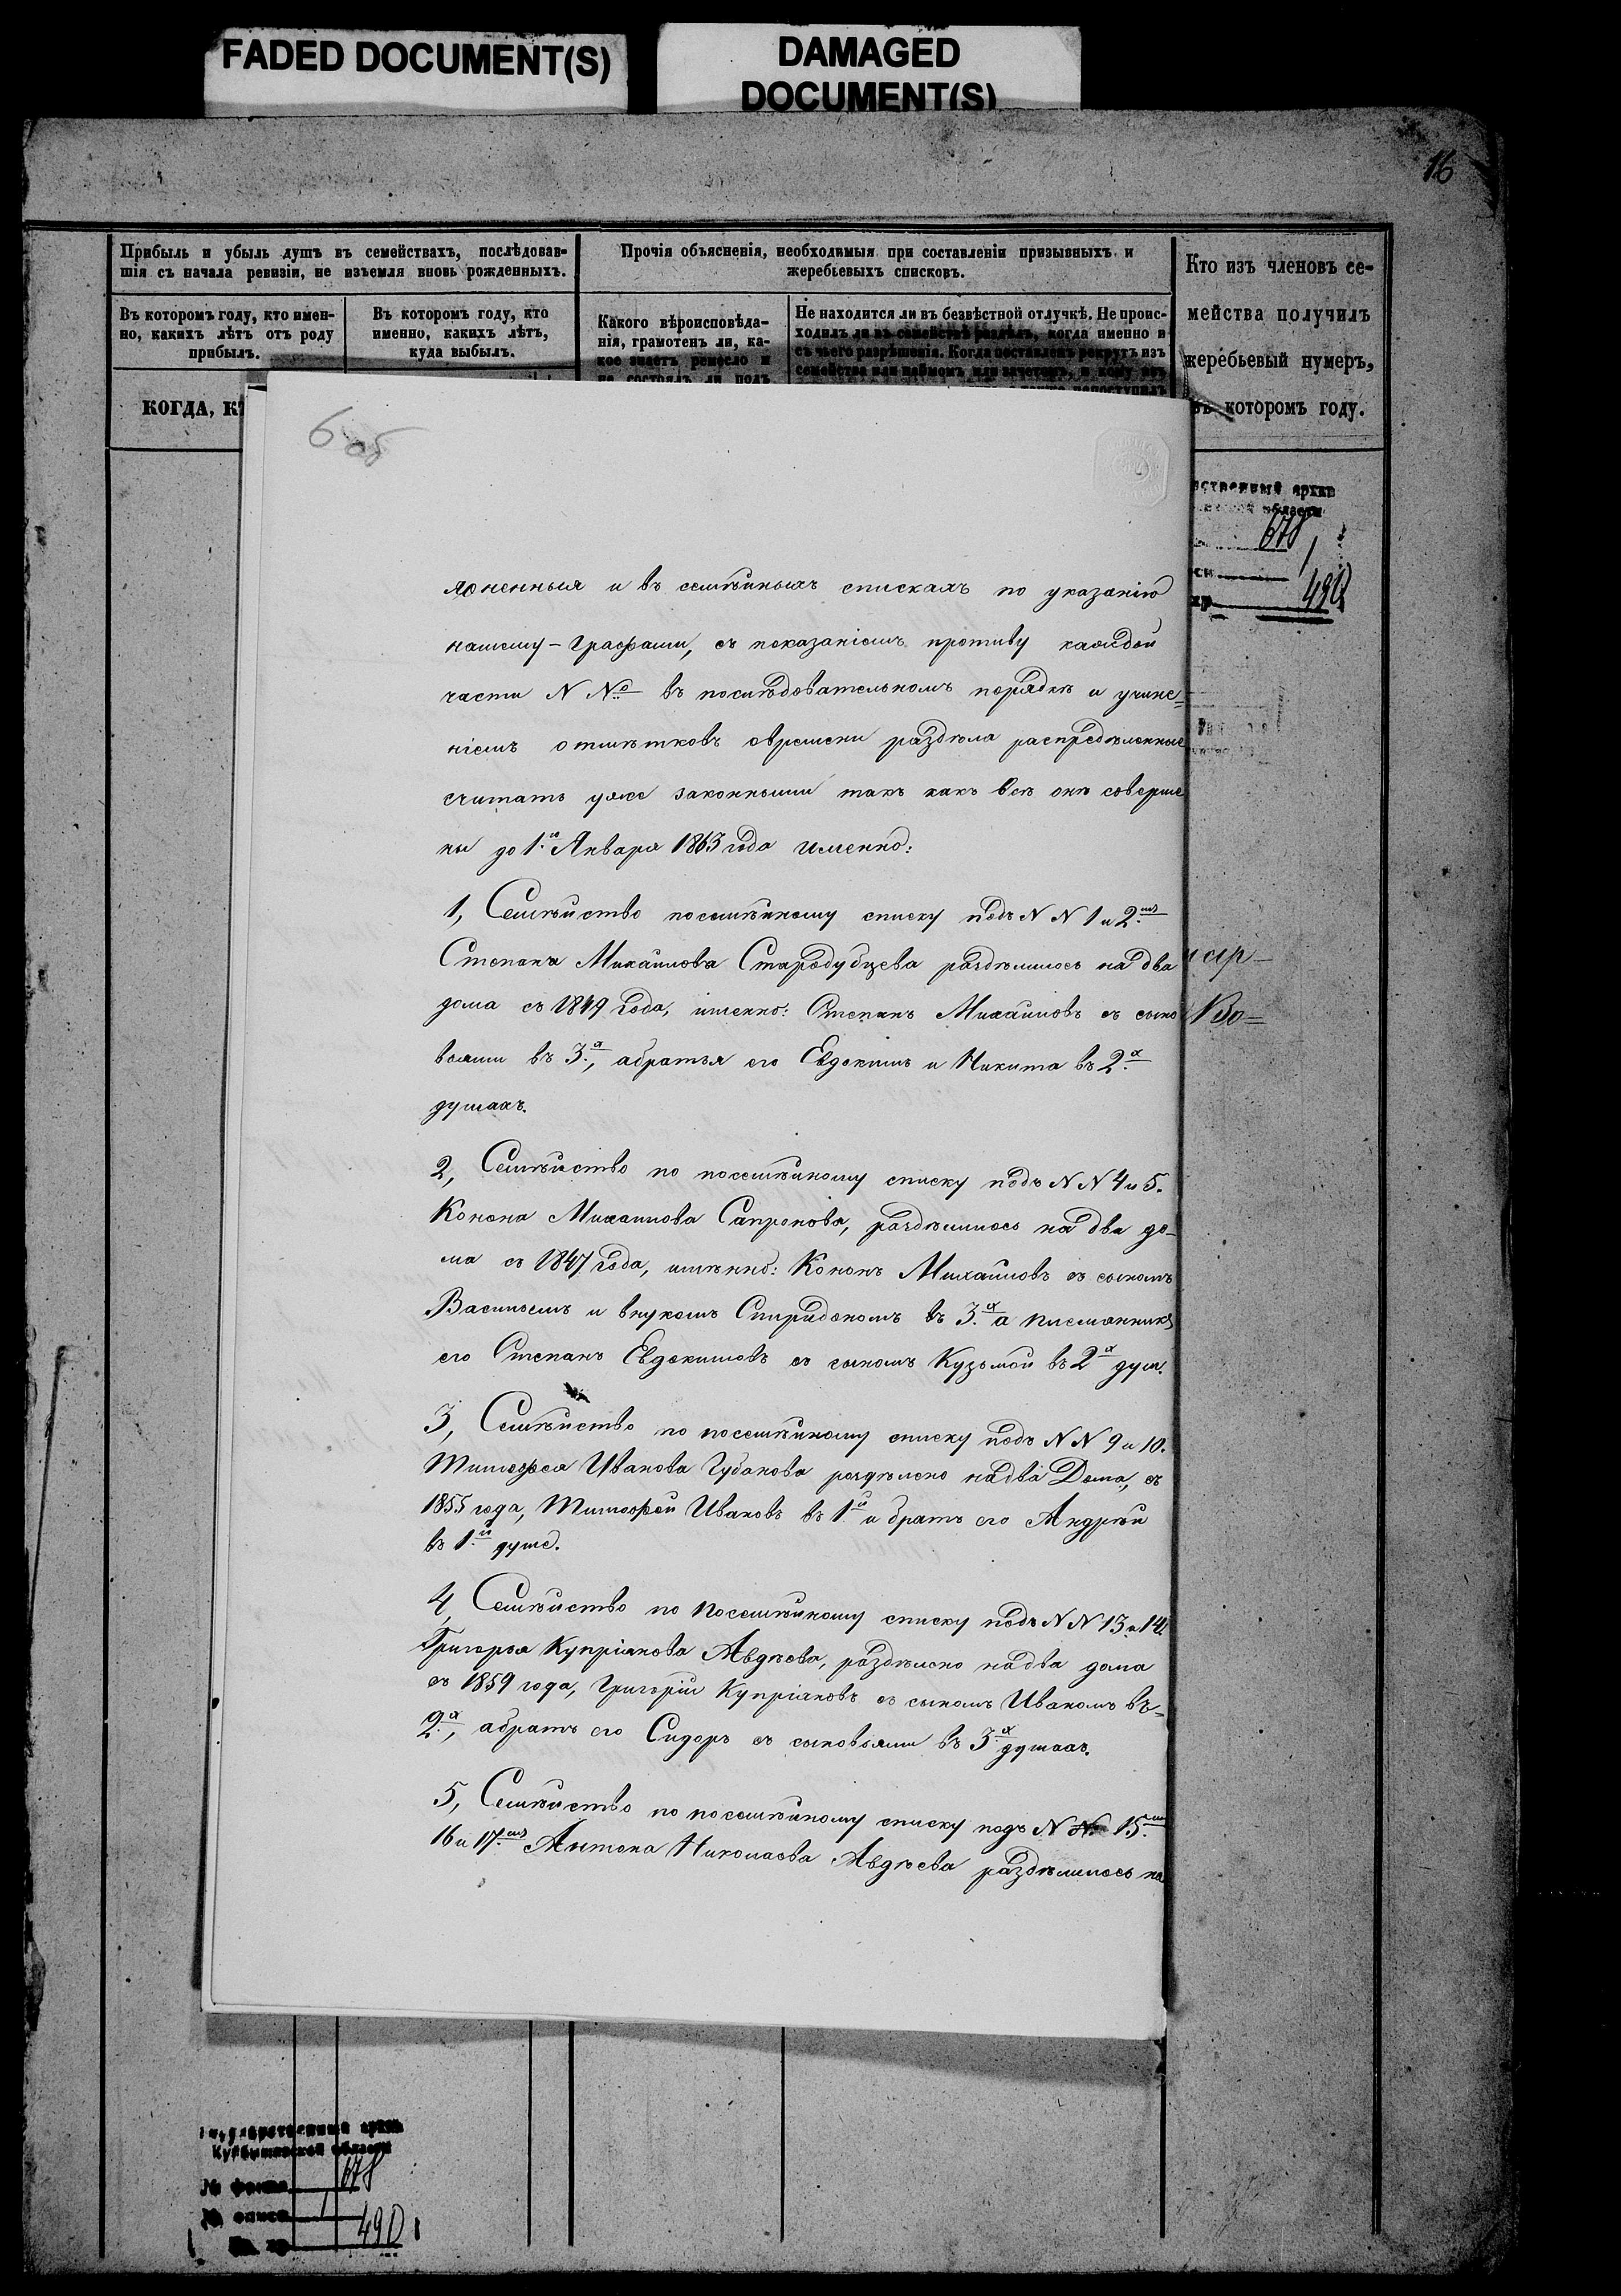 FADED DOCUMENT(S)
DAMAGED
DOCUMENT(S)
16
Прибыль и убыль душъ въ семействахъ, послѣдовав-
шія съ начала ревизіи, не изъемля вновь рожденныхъ.
Въ которомъ году, кто имен-
но, какихъ лѣтъ отъ роду
прибылъ.
Въ которомъ году, кто
именно, какихъ лѣтъ,
куда выбылъ.
КОГДА, К
Прочія объясненія, необходимыя при составленіи призывныхъ и
жеребьевыхъ списковъ.
Какого вѣроисповѣда-
нія, грамотенъ ли, ка-
кое знаетъ ремесло и
не состоялъ ли подъ
Не находится ли въ безвѣстной отлучкѣ. Не проис-
ходилъ ли въ семействѣ раздѣлъ, когда именно и
съ чьего разрѣшенія. Когда поставленъ рекрутъ изъ
семейства или наймомъ или зачетомъ, и кому
Кто изъ членовъ се-
мейства получилъ
жеребьевый нумеръ,
въ которомъ году.
6 об
и въ семѣйныхъ спискахъ по указанію
нашему - графами, съ показаніемъ противу каждой
части N №о въ послѣдовательномъ порядкѣ и учине=
ніемъ отмѣтковъ овремени раздѣла распредѣленные
считать уже законными такъ какъ всѣ онѣ соверше
ны до 1.го Января 1863 года именно:
1, Семѣйство посемѣйному списку подъ N N 1 и 2.мъ
Степана Михайлова Стародубцева раздѣлилось на два
дома съ 1849 года, именно: Степанъ Михайловъ съ сыно
вьями въ 3.х, абратья его Евдокимъ и Никита въ 2.х
душахъ.
2, Семѣйство по посемѣйному списку подъ N N 4 и 5.
Конона Михайлова Сапронова, раздѣлилось на два до-
ма съ 1847 года, имѣнно: Кононъ Михайловъ съ сыномъ
Васильемъ и внукомъ Спиридономъ въ 3.х а племянникъ
его Степанъ Евдокимовъ съ сыномъ Кузьмой въ 2х душ.
3, Семѣйство по посемѣйному списку подъ N N 9 и 10.
Тимофея Иванова Губанова раздѣлено надва Дома, съ
1855 года, Тимофей Ивановъ въ 1.й и братъ его Андрѣй
въ 1.й душѣ.
4, Семѣйство по посемѣйному списку подъ N N 13 и 14.
Григорья Купріянова Авдѣева, раздѣлено надва дома
съ 1859 года, Григорій Купріяновъ съ сыномъ Иваномъ въ=
2.х, абратъ его Сидоръ съ сыновьями въ 3.х душахъ.
5, Семѣйство по посемѣйному списку подъ N N 15.мъ
16 и 17.мъ Антона Николаева Авдѣева раздѣлилось на
ственный архив
области
678
1
490
Государственный архив
Куйбышевской области
№ фонда 678
№ описи 1
Ед. хр. 490